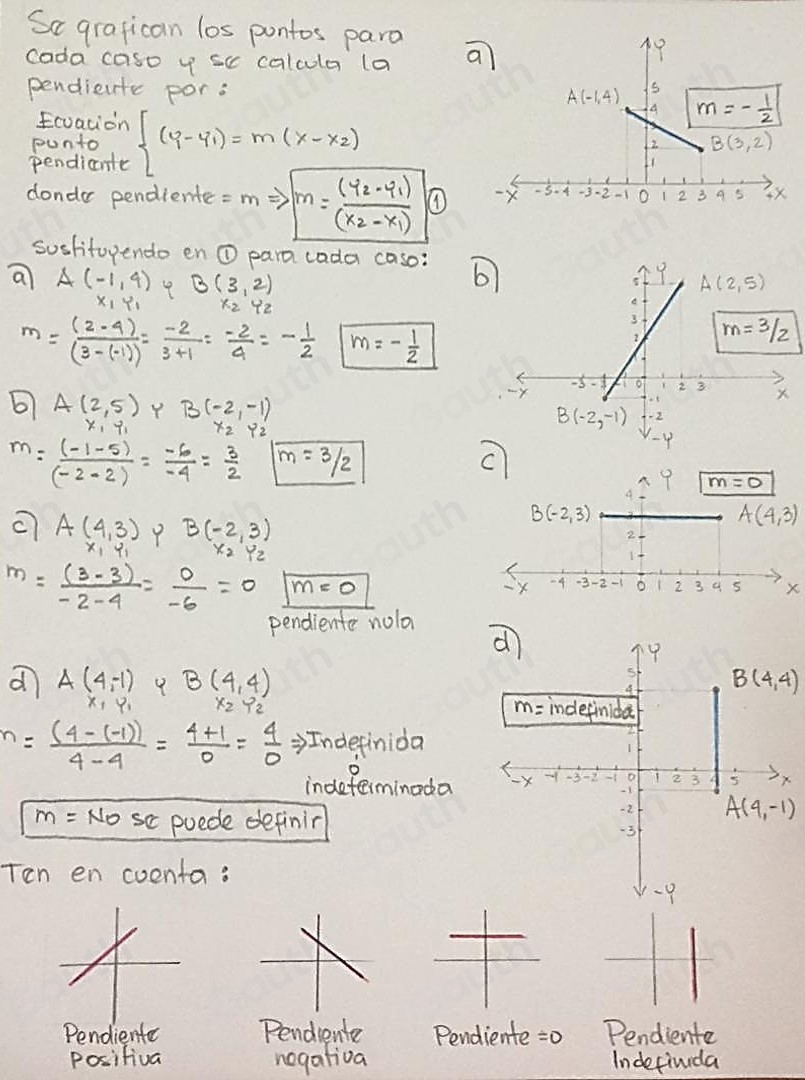 Se grafican los puntos para
cada caso y se calcula la
pendiente por:
Ecuación
punto
pendiente
[ (y-y₁) = m (x-x₂)
donde pendiente = m ⇒ m = (y₂-y₁)/(x₂-x₁) ①
Sustituyendo en ① para cada caso:
a) A (-1,4) y B(3,2)
x₁ y₁ x₂ y₂
m = (2-4)/(3-(-1)) = -2/3+1 = -2/4 = -1/2 m = -1/2
b) A (2,5) y B(-2,-1)
x₁ y₁ x₂ y₂
m = (-1-5)/(-2-2) = -6/-4 = 3/2 m = 3/2
c) A (4,3) y B(-2,3)
x₁ y₁ x₂ y₂
m = (3-3)/-2-4 = 0/-6 = 0 m = 0
pendiente nula
d) A (4,-1) y B(4,4)
x₁ y₁ x₂ y₂
m = (4-(-1))/4-4 = 4+1/0 = 4/0 ⇒ Indefinida
o
indeterminada
m = No se puede definir
Ten en cuenta:
Pendiente
Positiva
Pendiente
negativa
Pendiente =0
Pendiente
Indefinida
a)
y
5
A(-1,4)
4
m = -1/2
2
B(3,2)
1
-x -5 -4 -3 -2 -1 0 1 2 3 4 5 x
b)
5 y
A(2,5)
4
3
m = 3/2
2
-x -1 1 2 3 x
-1
B(-2,-1)
-2
-y
c)
y
m = 0
4
B(-2,3)
A(4,3)
2
1
-x -4 -3 -2 -1 0 1 2 3 4 5 x
d)
y
5
B(4,4)
4
m = indefinida
1
-x -4 -3 -2 -1 0 1 2 3 4 5 x
-1
A(4,-1)
-2
-3
-y